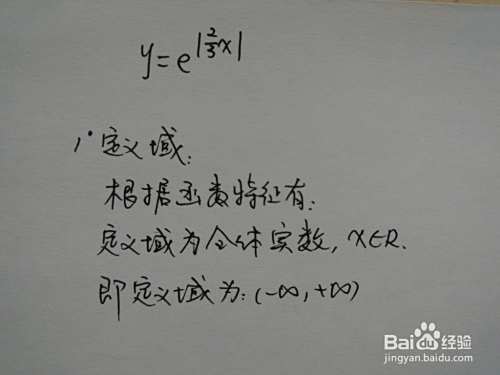 y=e^|2/3 x|
1° 定义域:
根据函数特征有:
定义域为全体实数, x∈R.
即定义域为:(-∞,+∞)
Baidu 经验
jingyan.baidu.com